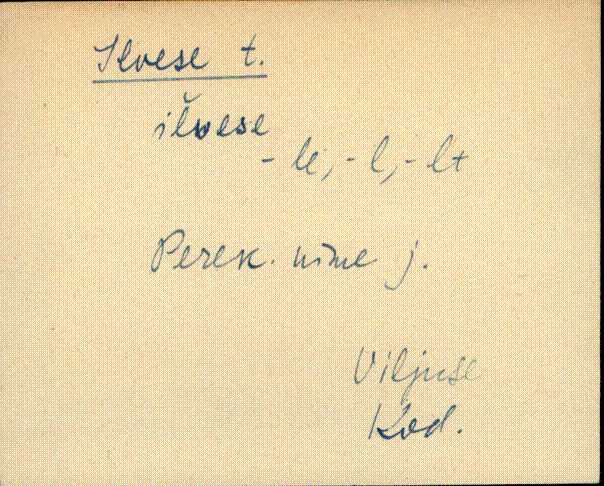 Ilvese t.
iľvese
- le, - l, - lt
Perek. nime j.
Viljuse
Kod.